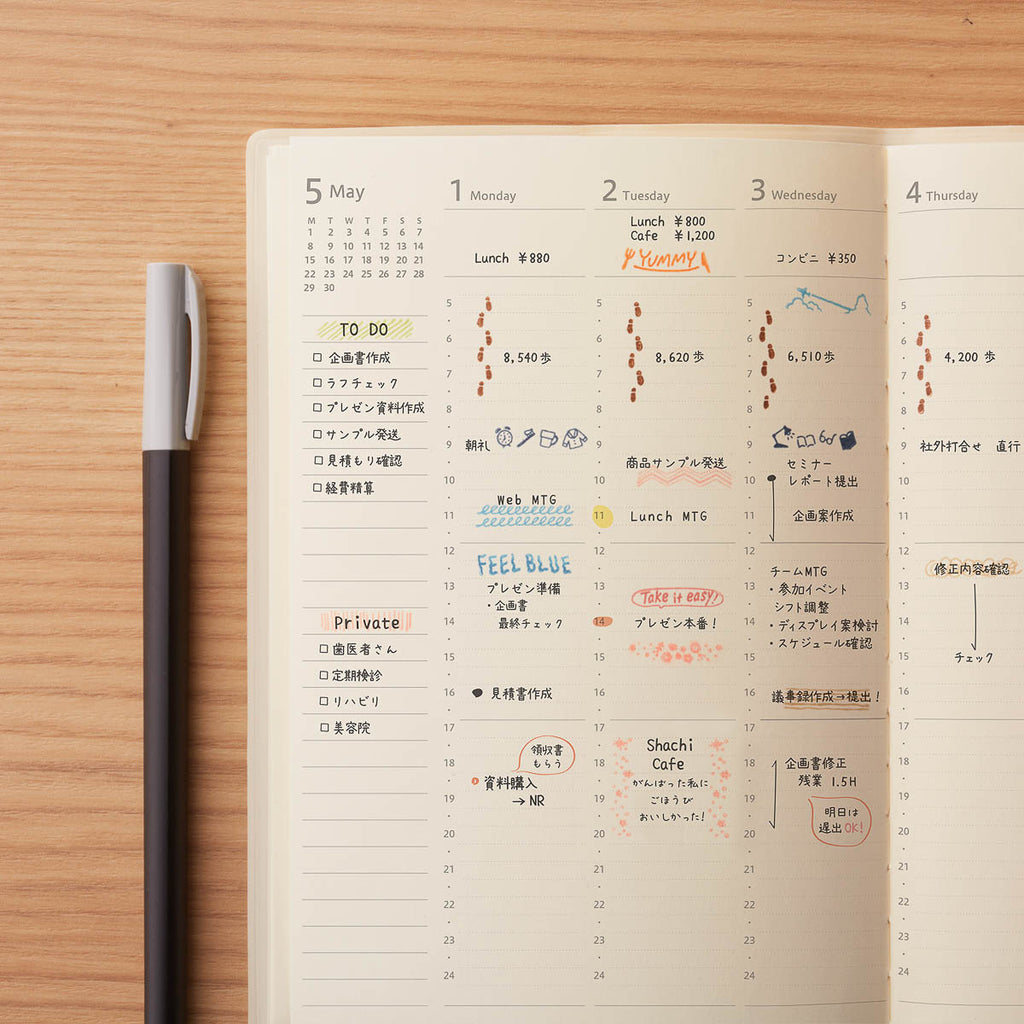 5 May
M T W T F S S
1 2 3 4 5 6 7
8 9 10 11 12 13 14
15 16 17 18 19 20 21
22 23 24 25 26 27 28
29 30
TO DO
企画書作成
ラフチェック
プレゼン資料作成
サンプル発送
見積もり確認
経費精算
Private
歯医者さん
定期検診
リハビリ
美容院
1 Monday
Lunch ¥880
5
6
8,540歩
7
8
9
朝礼
10
Web MTG
11
12
FEEL BLUE
13
プレゼン準備
・企画書
14
最終チェック
15
16
見積書作成
17
領収書
もらう
18
資料購入
19
→ NR
20
21
22
23
24
2 Tuesday
Lunch ¥800
Cafe ¥1,200
YUMMY
5
6
8,620歩
7
8
9
商品サンプル発送
10
11
Lunch MTG
12
13
Take it easy!
14
プレゼン本番!
15
16
17
Shachi
Cafe
18
がんばった私に
19
ごほうび
おいしかった!
20
21
22
23
24
3 Wednesday
コンビニ ¥350
5
6
6,510歩
7
8
9
セミナー
10
レポート提出
11
企画案作成
12
チームMTG
13
・参加イベント
シフト調整
14
・ディスプレイ案検討
・スケジュール確認
15
16
議事録作成→提出!
17
18
企画書修正
残業 1.5H
19
明日は
遅出OK!
20
21
22
23
24
4 Thursday
5
6
4,200歩
7
8
9
社外打合せ 直行
10
11
12
修正内容確認
13
14
15
チェック
16
17
18
19
20
21
22
23
24